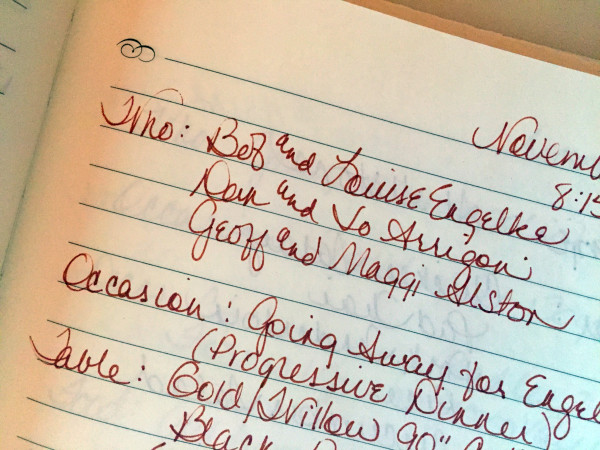 Novemb
8:15
Who: Bob and Louise Engelke
Dan and Jo Arrigoni
Geoff and Maggi Alston
Occasion: Going Away for Engel
(Progressive Dinner)
Table: Gold/Willow 90"
Black